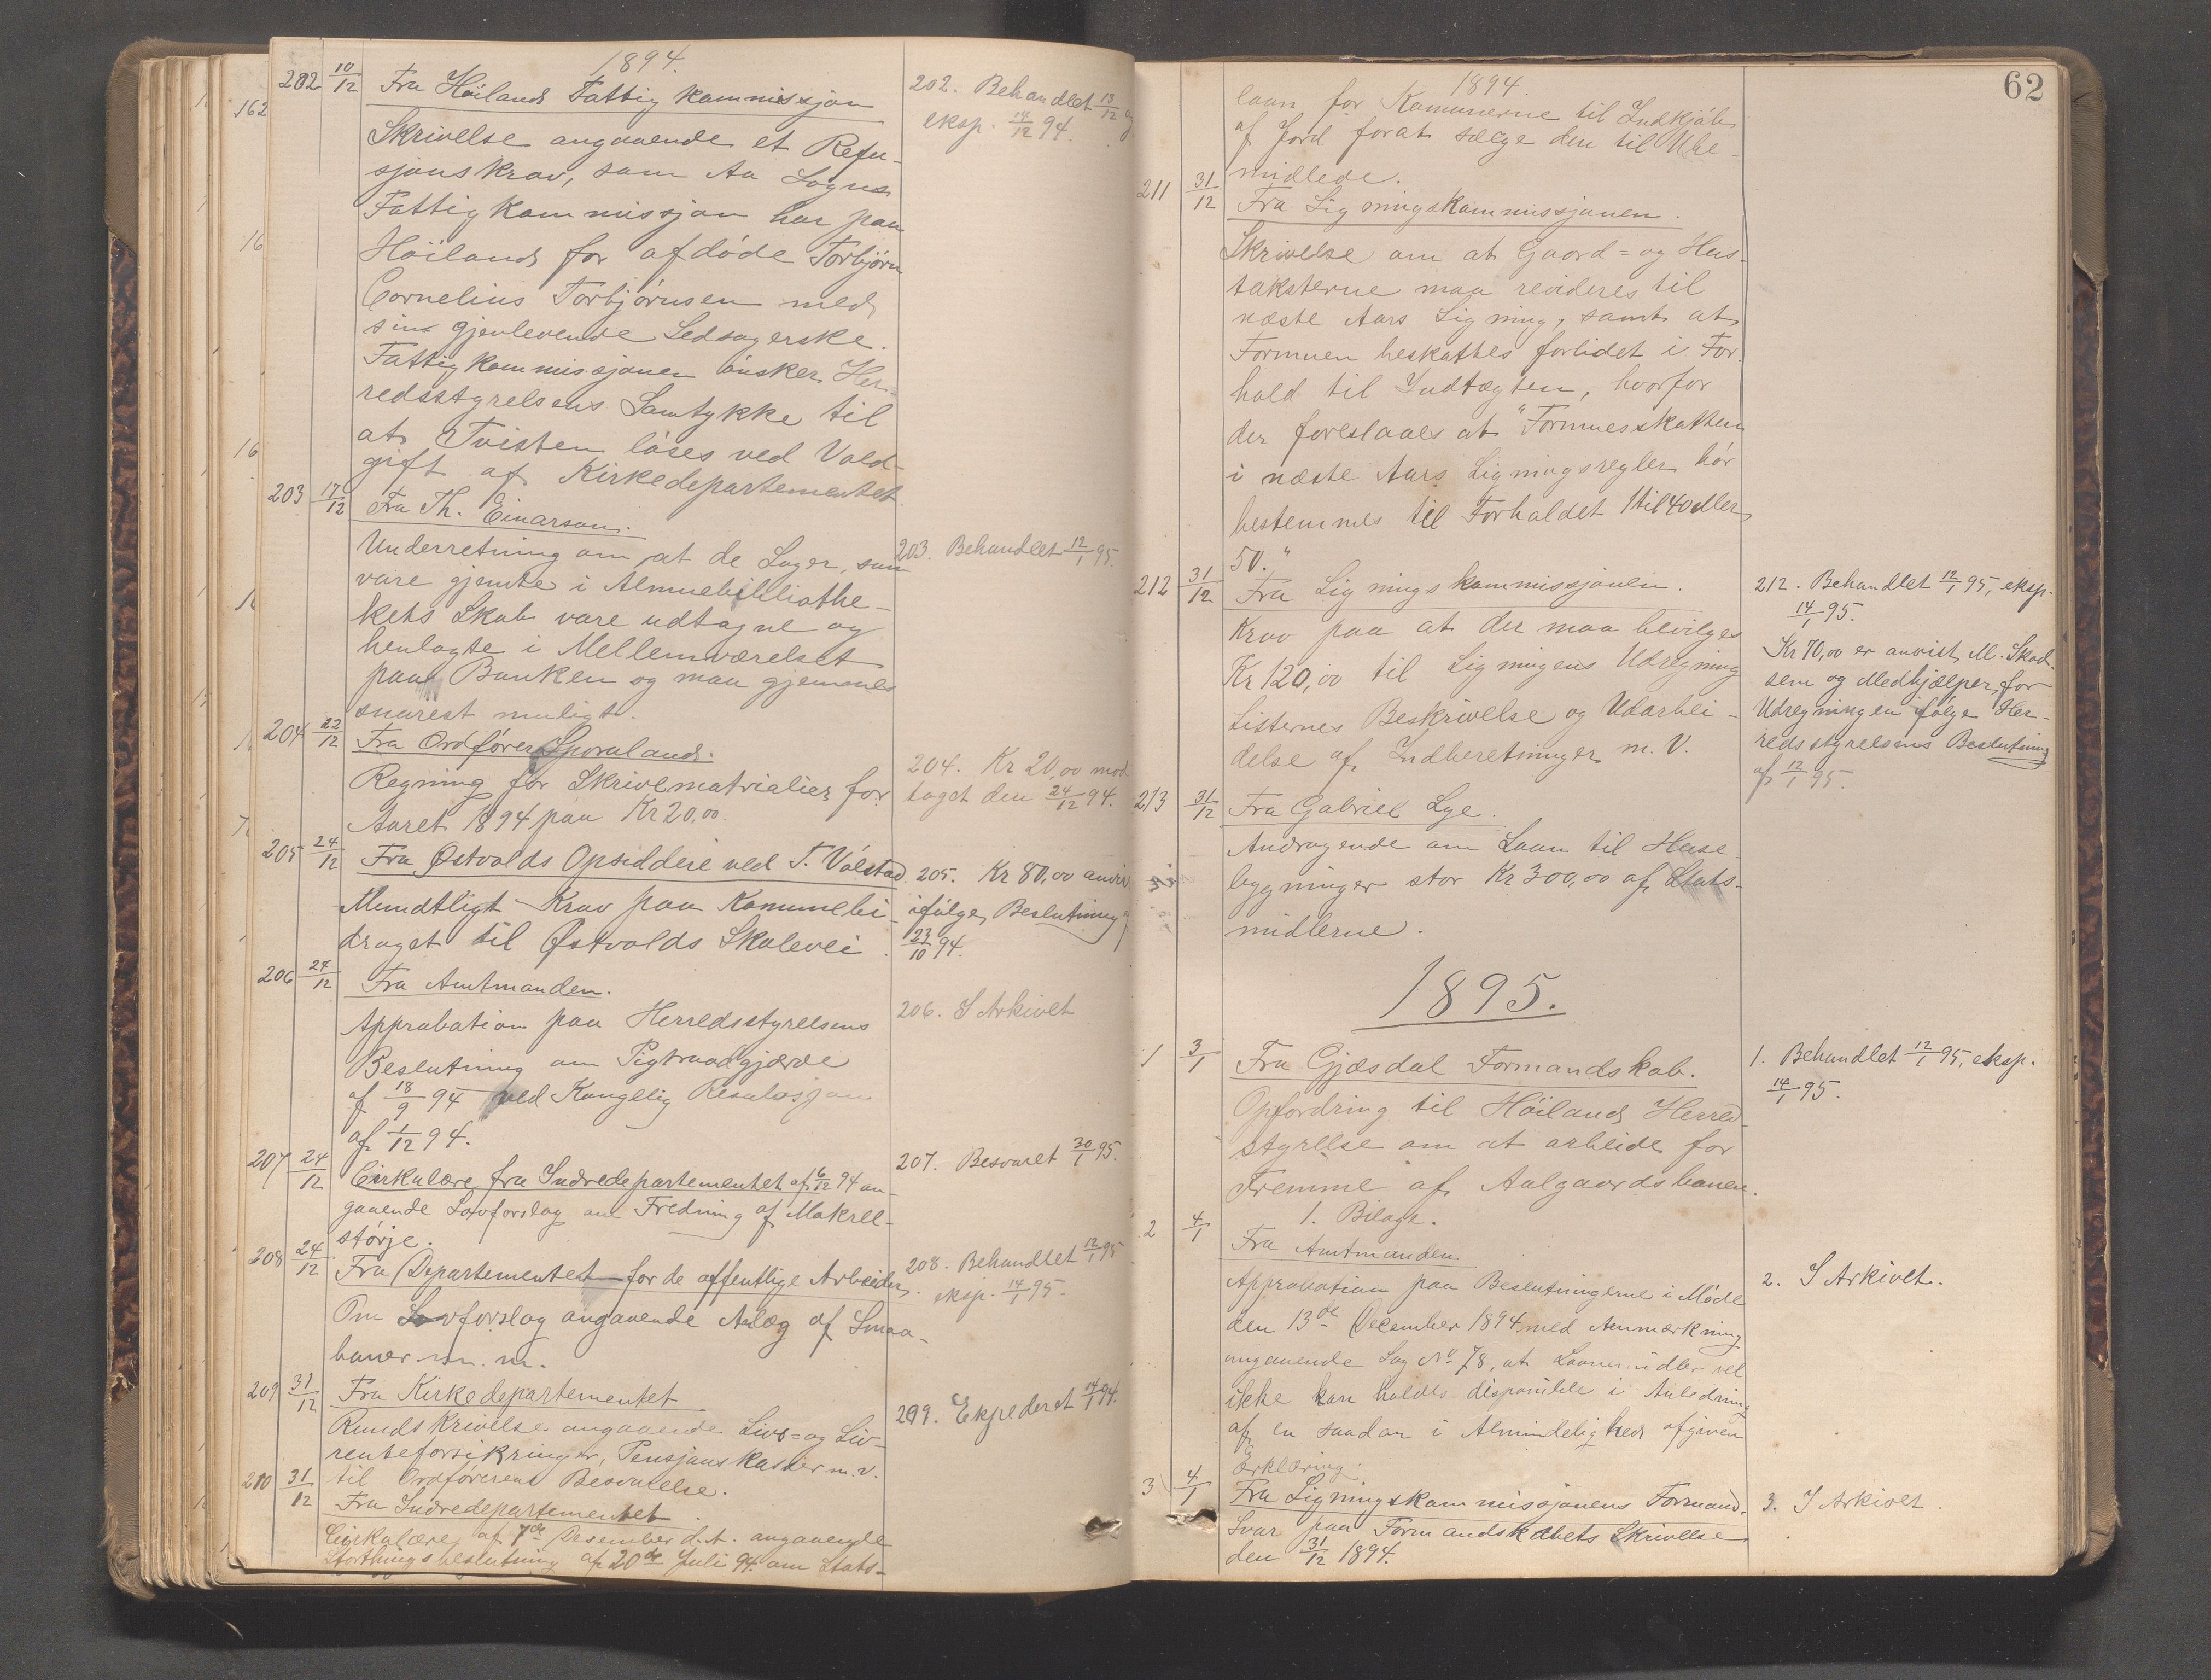 1894.
202 10/12 Fra Höilands Fattigkommissjon
Skrivelse angaaende et Refu-
sjonskrav, som Aa Sogns
Fattigkommissjon har paa
Höiland for afdöde Torbjörn
Cornelius Torbjörnsen med
sin gjenlevende Ledsagerske.
Fattigkommissjonen önsker Her-
redsstyrelsens Samtykke til
at Tvisten löses ved Vold-
gift af Kirkedepartementet
202. Behandlet 13/12 og
eksp. 14/12 94.
203 17/12 Fra Th. Einarson.
Underretning om at de Sager, som
vare gjemte i Almuebibliothe-
kets Skab vare udtagne og
henlagte i Mellemværelset
paa Banken og maa gjemmes
snarest muligt.
203. Behandlet 12/1 95.
204 22/12 Fra Ordförer Sporaland.
Regning for Skrivematrialier for
Aaret 1894 paa Kr 20,00.
204. Kr 20,00 mod
taget den 24/12 94.
205 24/12 Fra Østvolds Opsiddere ved T. Válstad
Mundtligt Krav paa Kommunebi-
draget til Østvolds Skolevei
205. Kr 80,00 anvis
ifölge Beslutning af
23/10 94.
206 24/12 Fra Amtmanden.
Approbation paa Herredsstyrelsens
Beslutning om Pigtraadgjærde
af 18/9 94 ved Kongelig Resolusjon
af 1/12 94.
206. I Arkivet
207 24/12 Cirkulære fra Indredepartementet af 6/12 94 an-
gaaende Lovforslag om Fredning af Makrel-
störje.
207. Besvaret 30/1 95.
208 24/12 Fra Departementet for de offentlige Arbeider.
Om Lovforslag angaaende Anlæg af Smaa-
baner m. m.
208. Behandlet 12/1 95
eksp. 14/1 95.
209 31/12 Fra Kirkedepartementet
Rundskrivelse angaaende Livs- og Liv-
renteforsikringer, Pensjonskasser m. v.
til Ordförerens Besvarelse.
209. Ekspederet 14/1 94.
210 31/12 Fra Indredepartementet
Cirkulære af 7de Desember d. A. angaaende
Storthingsbeslutning af 20de Juli 94 om Stats-
162
16
16
62
1894.
laan for Komunerne til Indkjöb
af Jord forat sælge den til Ube-
midlede.
211 31/12 Fra Ligningskommissjonen.
Skrivelse om at Gaard- og Hus-
taksterne maa revideres til
næste Aars Ligning, samt at
Formuen beskattes forlidet i For-
hold til Indtægten, hvorfor
der foreslaaes at "Formuesskatten
i næste Aars Ligningsregler bör
bestemmes til Forholdet 1 til 40 eller
50."
212 31/12 Fra Ligningskommissjonen.
Krav paa at der maa bevilges
Kr 120,00 til Ligningens Udregning
Listernes Beskrivelse og Udarbei-
delse af Indberetninger m. V.
212. Behandlet 12/1 95, eksp.
14/1 95.
Kr 70,00 er anvist M. Skad-
sem og Medhjælper for
Udregningen ifölge Her-
redsstyrelsens Beslutning
af 12/1 95.
213 31/12 Fra Gabriel Lye.
Andragende om Laan til Huse-
bygninger stor Kr 300,00 af Stats-
midlerne.
1895.
1 3/1 Fra Gjæsdal Formandskab.
Opfordring til Höilands Herred-
styrelse om at arbeide for
Fremme af Aalgaardsbanen.
1. Bilag.
1. Behandlet 12/1 95, eksp.
14/1 95.
2 4/1 Fra Amtmanden
Approbation paa Beslutningerne i Möde
den 13de December 1894 med Anmærkning
angaaende Sag No 78, at Laanemidler vel
ikke kan holdes disponible i Anledning
af en saadan i Almindelighed afgiven
Erklæring.
2. I Arkivet.
3 4/1 Fra Ligningskommissjonens Formand.
Svar paa Formandskabets Skrivelse
den 31/12 1894.
3. I Arkivet.